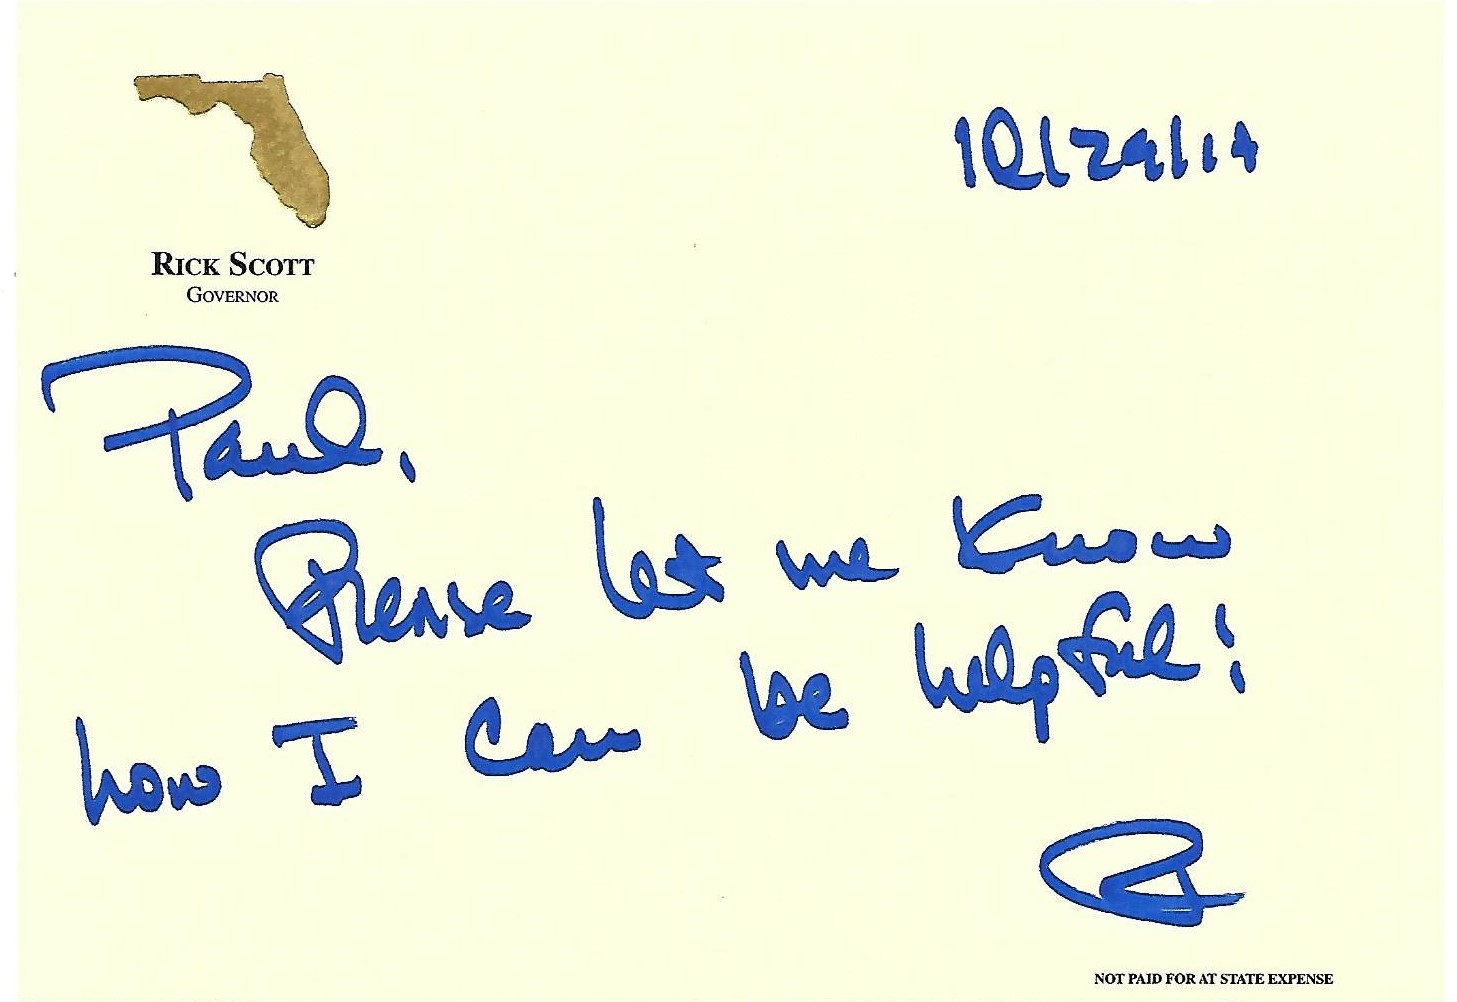 10/29/14
RICK SCOTT
GOVERNOR
Paul,
Please let me know
how I can be helpful!
NOT PAID FOR AT STATE EXPENSE